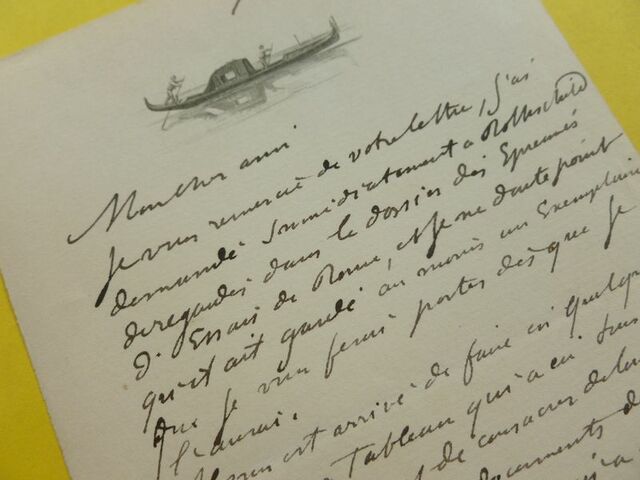 Mon cher ami.
Je vous remercie de votre lettre, J'ai
demandé immédiatement a Rothschild
de regarder dans le dossier des Epreuves
d'Essais de Rome, et Je ne doute point
qu'il ait gardé au moins un Exemplaire
que Je vous ferai porter dès que Je
l'aurai.
est arrivé de faire en quelque
Tableau qui a eu
de consacrer
documents